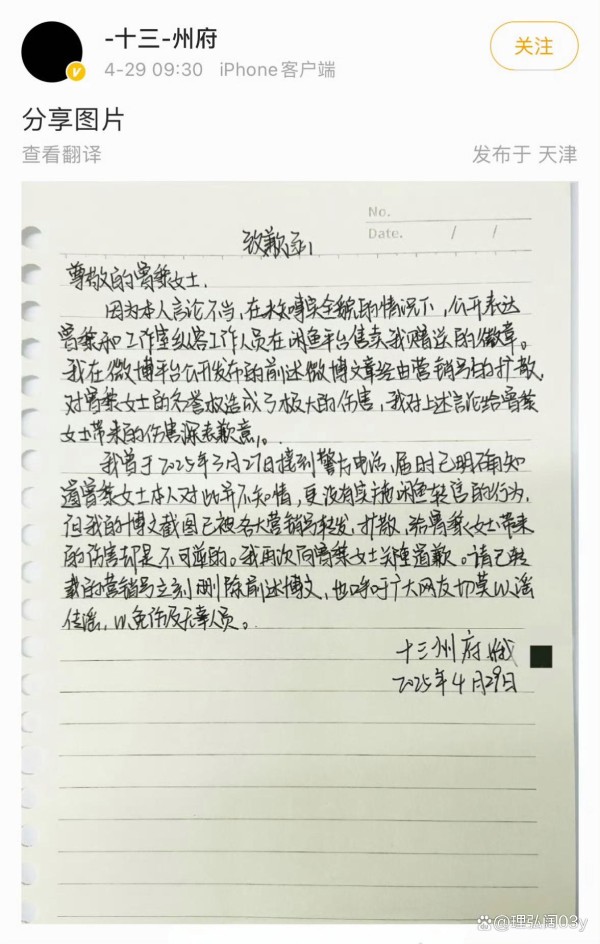 -十三-州府
4-29 09:30 iPhone客户端
关注
分享图片
查看翻译
发布于 天津
No.
Date. / /
致歉函
尊敬的曾黎女士.
因为本人言论不当,在未核实全貌的情况下,公开表达
曾黎和工作室纵容工作人员在闲鱼平台售卖我赠送的徽章。
我在微博平台公开发布的前述微博文章经由营销号的扩散,
对曾黎女士的名誉权造成了极大的伤害,我对上述言论给曾黎
女士带来的伤害深表歉意。
我曾于2025年3月27日接到警方电话,届时已明确知
道曾黎女士本人对此并不知情,更没有实施闲鱼转售的行为,
但我的博文截图已被各大营销号转发、扩散,给曾黎女士带来
的伤害却是不可逆的。我再次向曾黎女士郑重道歉。请已转
载的营销号立刻删除前述博文,也呼吁广大网友切莫以谣
传谣,以免伤及无辜人员。
十三州府
2025年4月29日
理弘阔03y